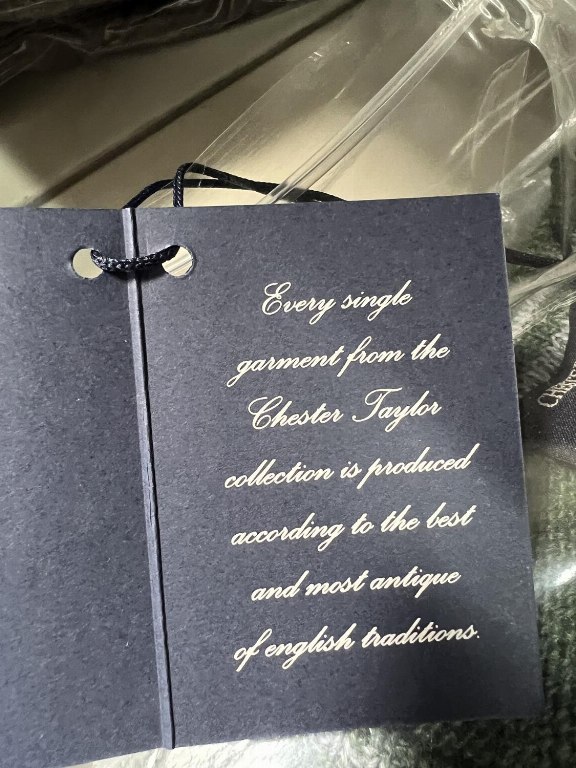 Every single
garment from the
Chester Taylor
collection is produced
according to the best
and most antique
of english traditions.